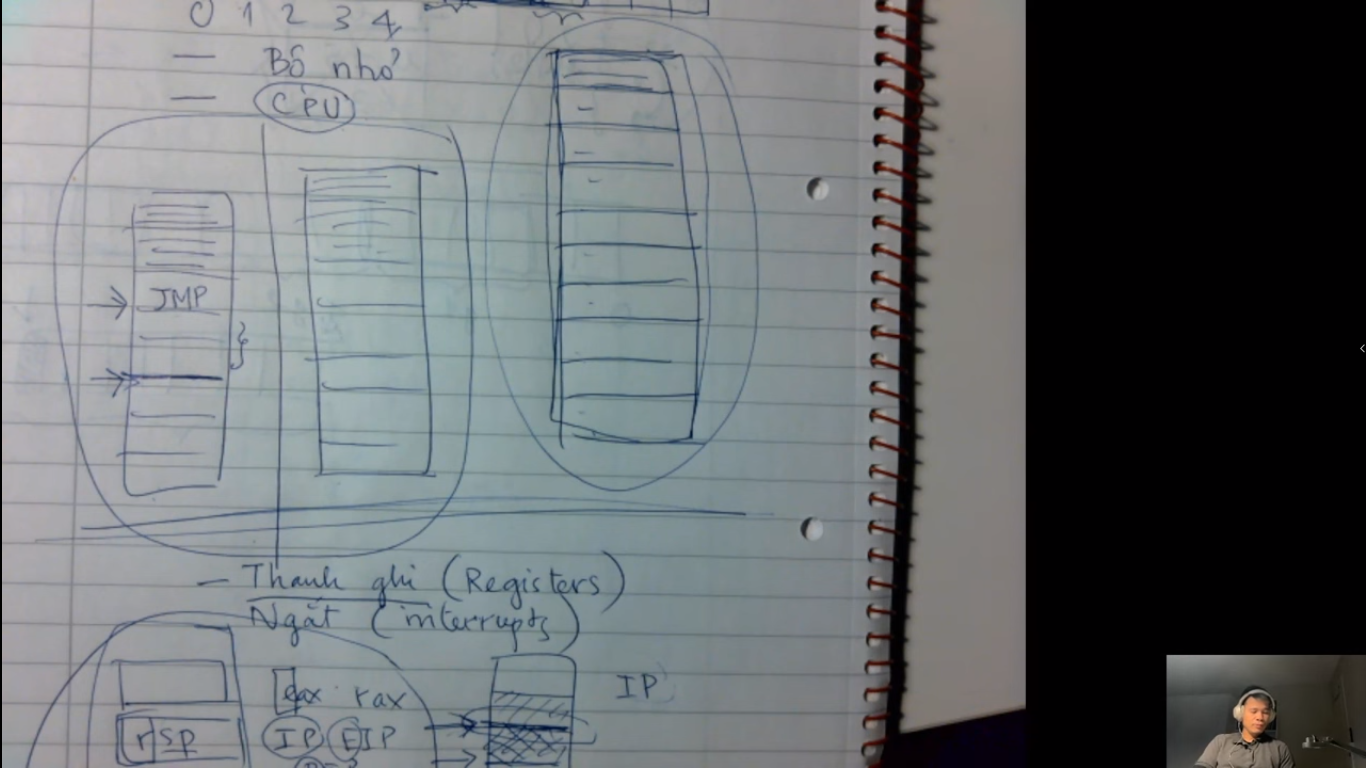 0 1 2 3 4
— Bộ nhớ
— CPU
JMP
— Thanh ghi (Registers)
Ngắt (interrupts)
eax rax IP
rsp IP EIP